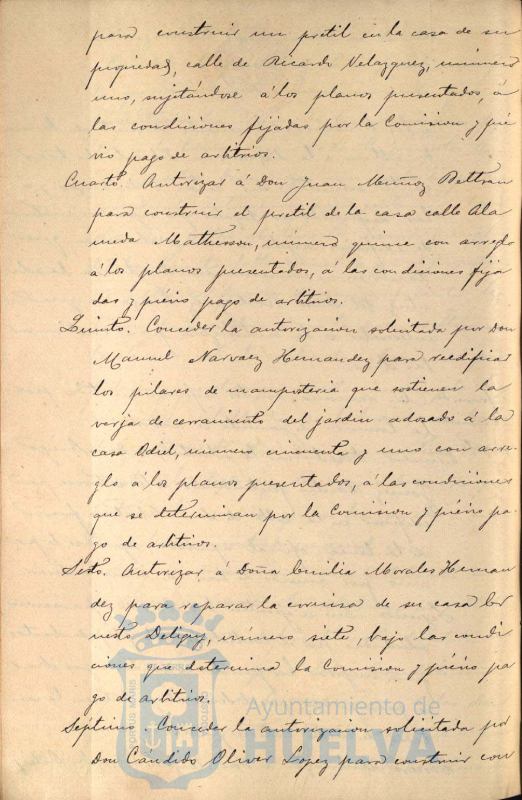 para construir un pretil en la casa de su
propiedad, calle de Ricardo Velazquez, número
uno, sujetándose á los planos presentados, á
las condiciones fijadas por la Comision y pré
vio pago de arbitrios.
Cuarto. Autorizar á Don Juan Muñoz Beltran
para construir el pretil de la casa calle Ala
meda Matherson, número quince con arreglo
á los planos presentados, á las condiciones fija
das y prévio pago de arbitrios.
Quinto. Conceder la autorizacion solicitada por Don
Manuel Narvaez Hernandez para reedificar
los pilares de mamposteria que sostienen la
verja de cerramiento del jardin adosado á la
casa Odiel, número cincuenta y uno con arre-
glo á los planos presentados, á las condiciones
que se determinan por la Comision y prévio pa
go de arbitrios.
Sesto. Autorizar á Doña Emilia Morales Hernan
dez para reparar la cornisa de su casa Er
nesto Deligny, número siete, bajo las condi
ciones que determina la Comision y prévio pa
go de arbitrios.
Septimo. Conceder la autorizacion solicitada por
Don Candido Oliver Lopez para construir con
Ayuntamiento de
HUELVA